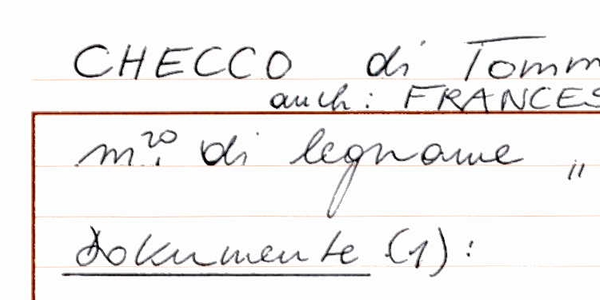 CHECCO di Tomm
auch: FRANCES
m.ro di legname "
Dokumente (1):